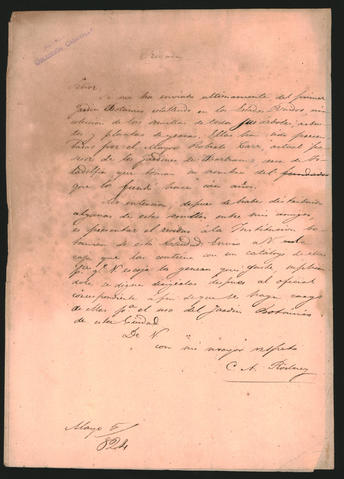 Privada
Señor
Se me ha enviado ultimamente, del primer
Jardin Botanico establecido en los Estados Unidos, una
coleccion de las semillas de todos sus árboles, arbus
tos y plantas de yervas. Ellas han sido presen
tadas por el Mayor Roberto Carr, actual po
seedor de los Jardines de Bartram, cerca de Fi
ladelfia que toman su nombre del fundador
que lo fundó hace cien años.
Mi intencion, despues de haber distribuido
algunas de estas semillas entre mis amigos,
es presentar el residuo a la Institucion bo
tanica de esta Ciudad
caja que las contiene con un catalogo de ellas
para que N escoja las yervas que guste, suplican
dole se digne dirigirlas despues al oficial
correspondiente á fin de que se haga cargo
de ellas pa. el uso del Jardin Botanico
de esta Ciudad
De N
con mi mayor respeto
C. A. Rodney
Mayo 5/
824